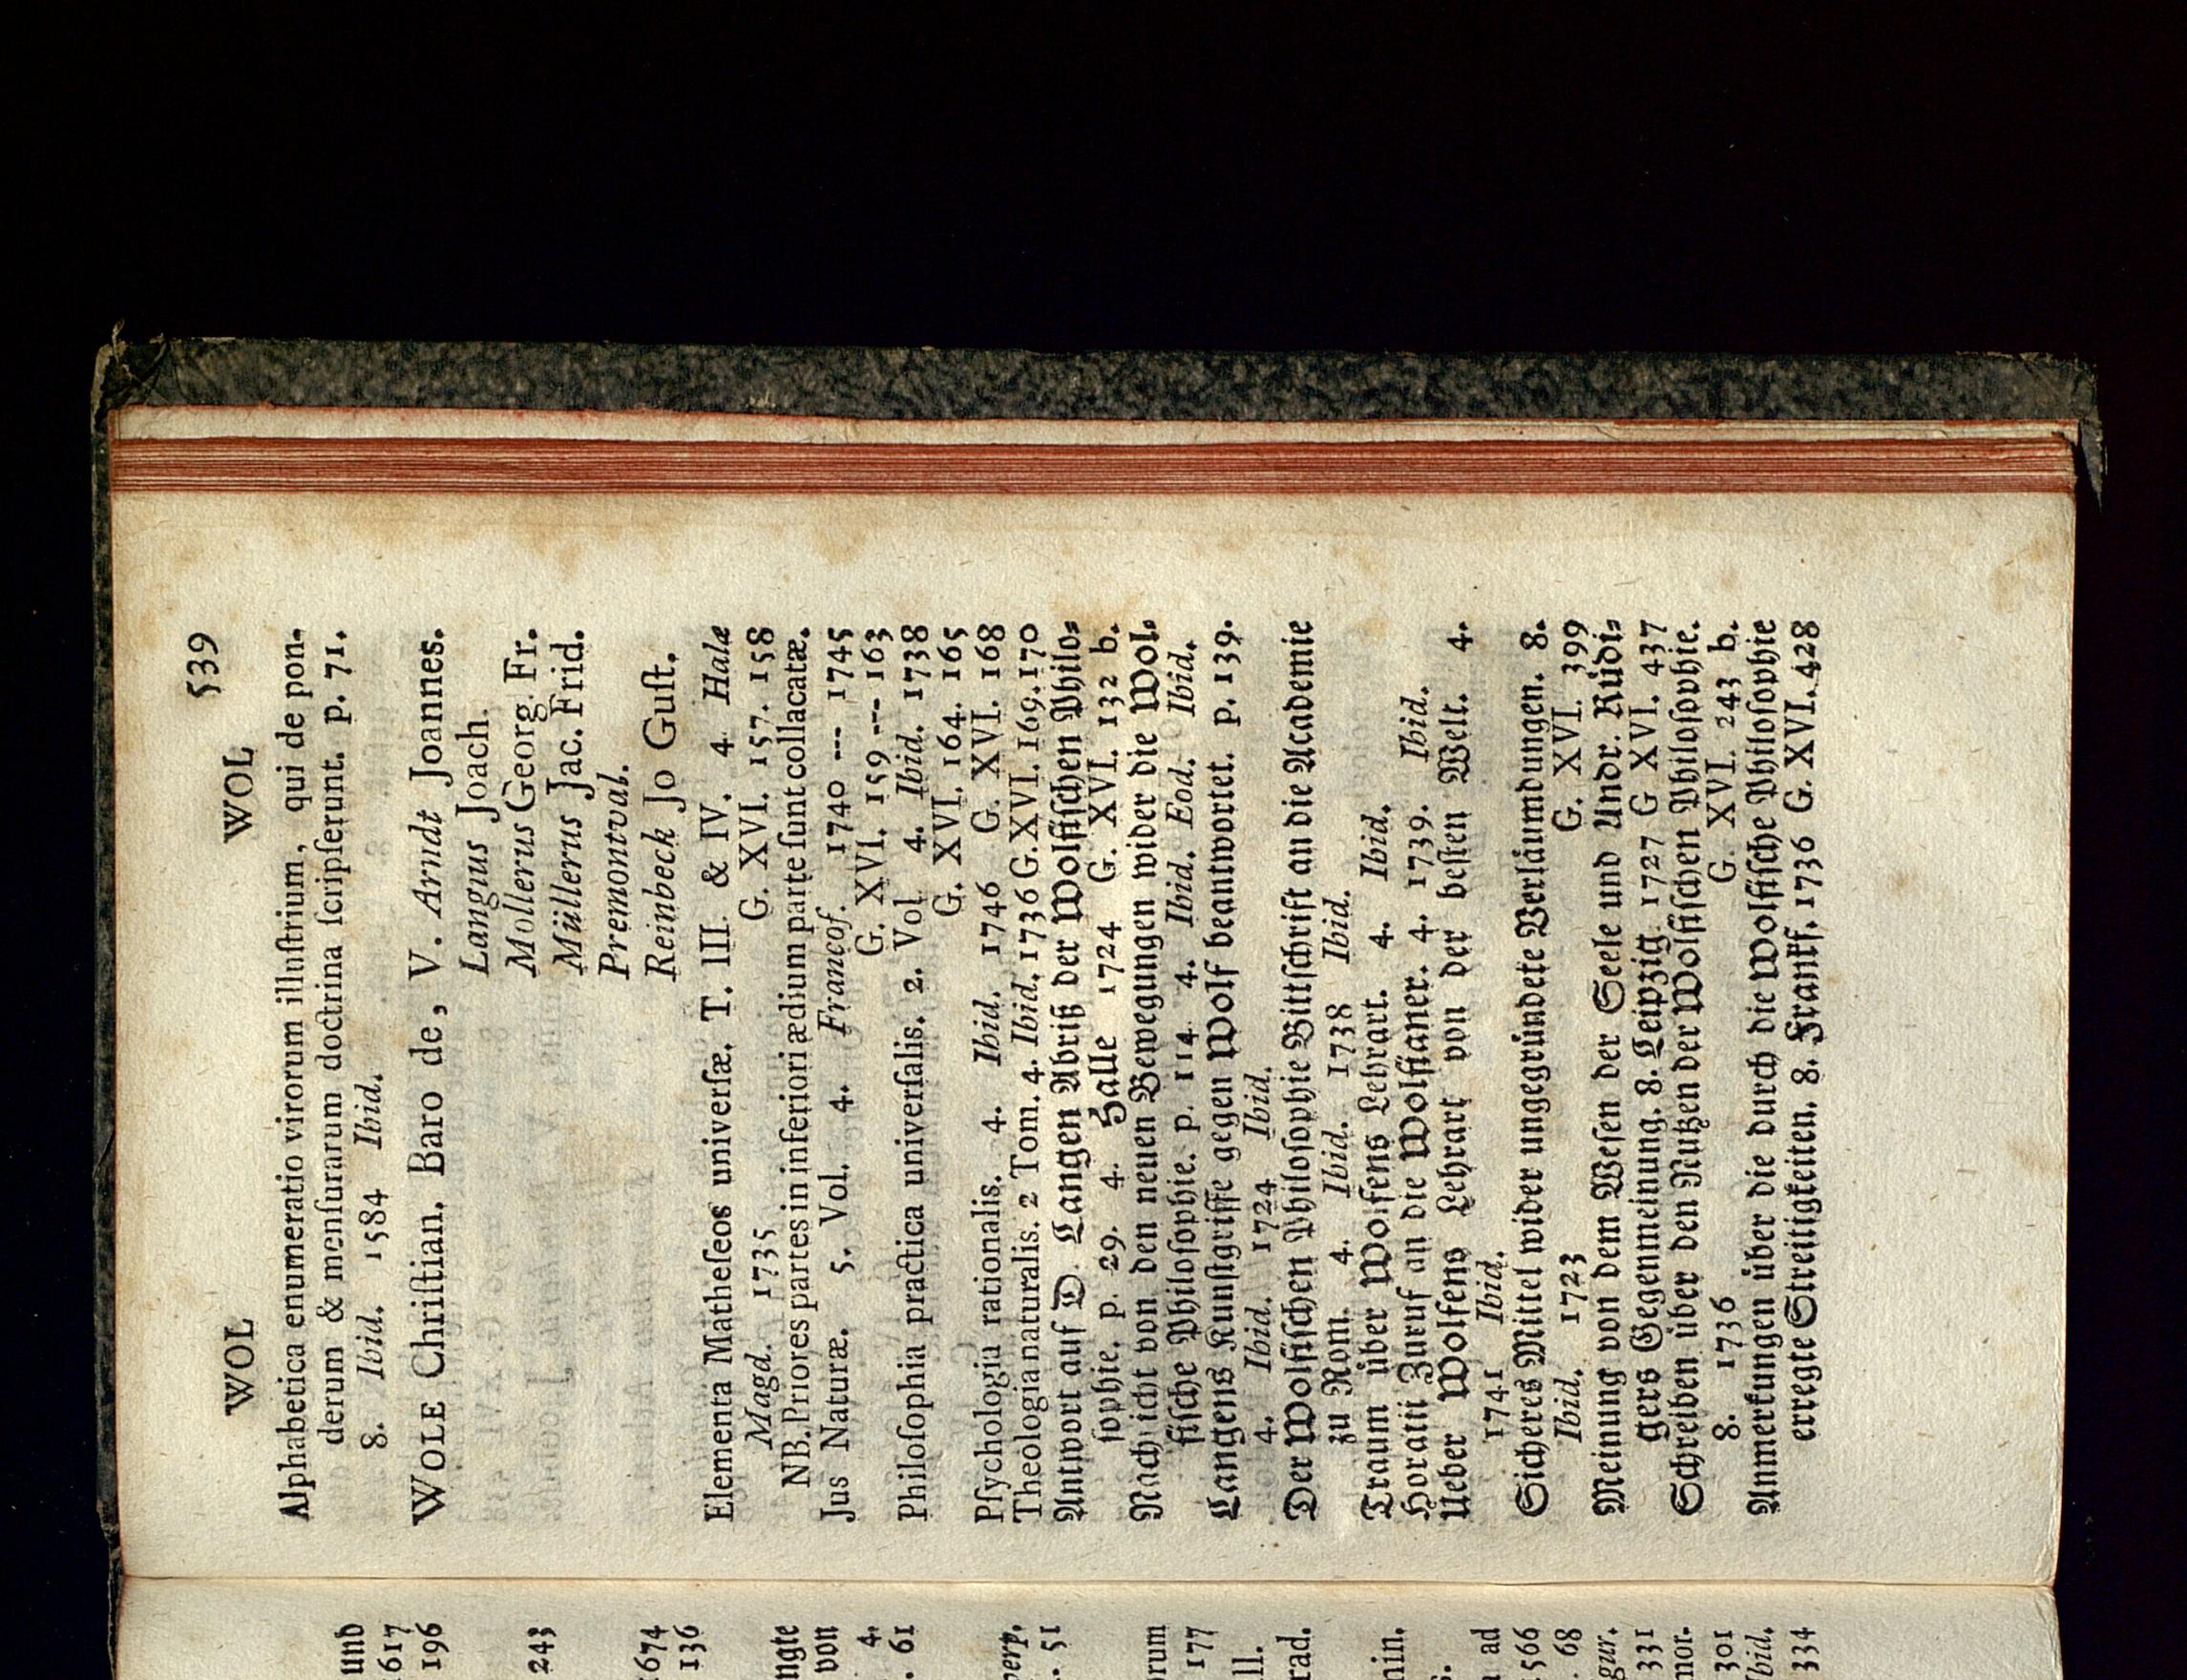 WOL WOL 539
Alphabetica enumeratio virorum illuſtrium, qui de pon-
derum & menſurarum doctrina ſcripſerunt. p. 71.
8. Ibid. 1584 Ibid.
WOLE Chriſtian. Baro de, V. Arndt Joannes.
Langius Joach.
Mollerus Georg. Fr.
Müllerus Jac. Frid.
Premontval.
Reinbeck Jo Guſt.
Elementa Matheſeos univerſæ. T. III. & IV. 4 Halæ
Magd. 1735 G. XVI. 157. 158
NB. Priores partes in inferiori ædium parte ſunt collacatæ.
Jus Naturæ. 5. Vol. 4. Francof. 1740 --- 1745
G. XVI. 159 --- 163
Philoſophia practica univerſalis. 2. Vol 4. Ibid. 1738
G. XVI. 164. 165
Pſychologia rationalis. 4. Ibid. 1746 G. XVI. 168
Theologia naturalis. 2 Tom. 4. Ibid. 1736 G. XVI. 169. 170
Antwort auf D. Langen Abriß der Wolfiſchen Philo⸗
ſophie. p. 29. 4. Halle 1724 G. XVI. 132 b.
Nach icht von den neuen Bewegungen wider die Wol⸗
fiſche Philoſophie. p. 114 4. Ibid. Eod. Ibid.
Langens Kunſtgriffe gegen Wolf beantwortet. p. 139.
4. Ibid. 1724 Ibid.
Der Wolfiſchen Philoſophie Bittſchrift an die Academie
zu Rom. 4. Ibid. 1738 Ibid.
Traum über Wolfens Lehrart. 4. Ibid.
Horatii Zuruf an die Wolfianer. 4. 1739. Ibid.
Ueber Wolfens Lehrart von der beſten Welt. 4.
1741 Ibid.
Sicheres Mittel wider ungegründete Verläumdungen. 8.
Ibid. 1723 G. XVI. 399
Meinung von dem Weſen der Seele und Andr. Rüdi⸗
gers Gegenmeinung. 8. Leipzig. 1727 G XVI. 437
Schreiben über den Nutzen der Wolfiſchen Philoſophie.
8. 1736 G. XVI. 243 b.
Anmerkungen über die durch die Wolfiſche Philoſophie
erregte Streitigkeiten. 8. Frankf. 1736 G. XVI. 428
und
617
196
243
674
136
ngte
von
4.
. 61
. 51
orum
177
ll.
rad.
nin.
ad
566
. 68
331
301
334